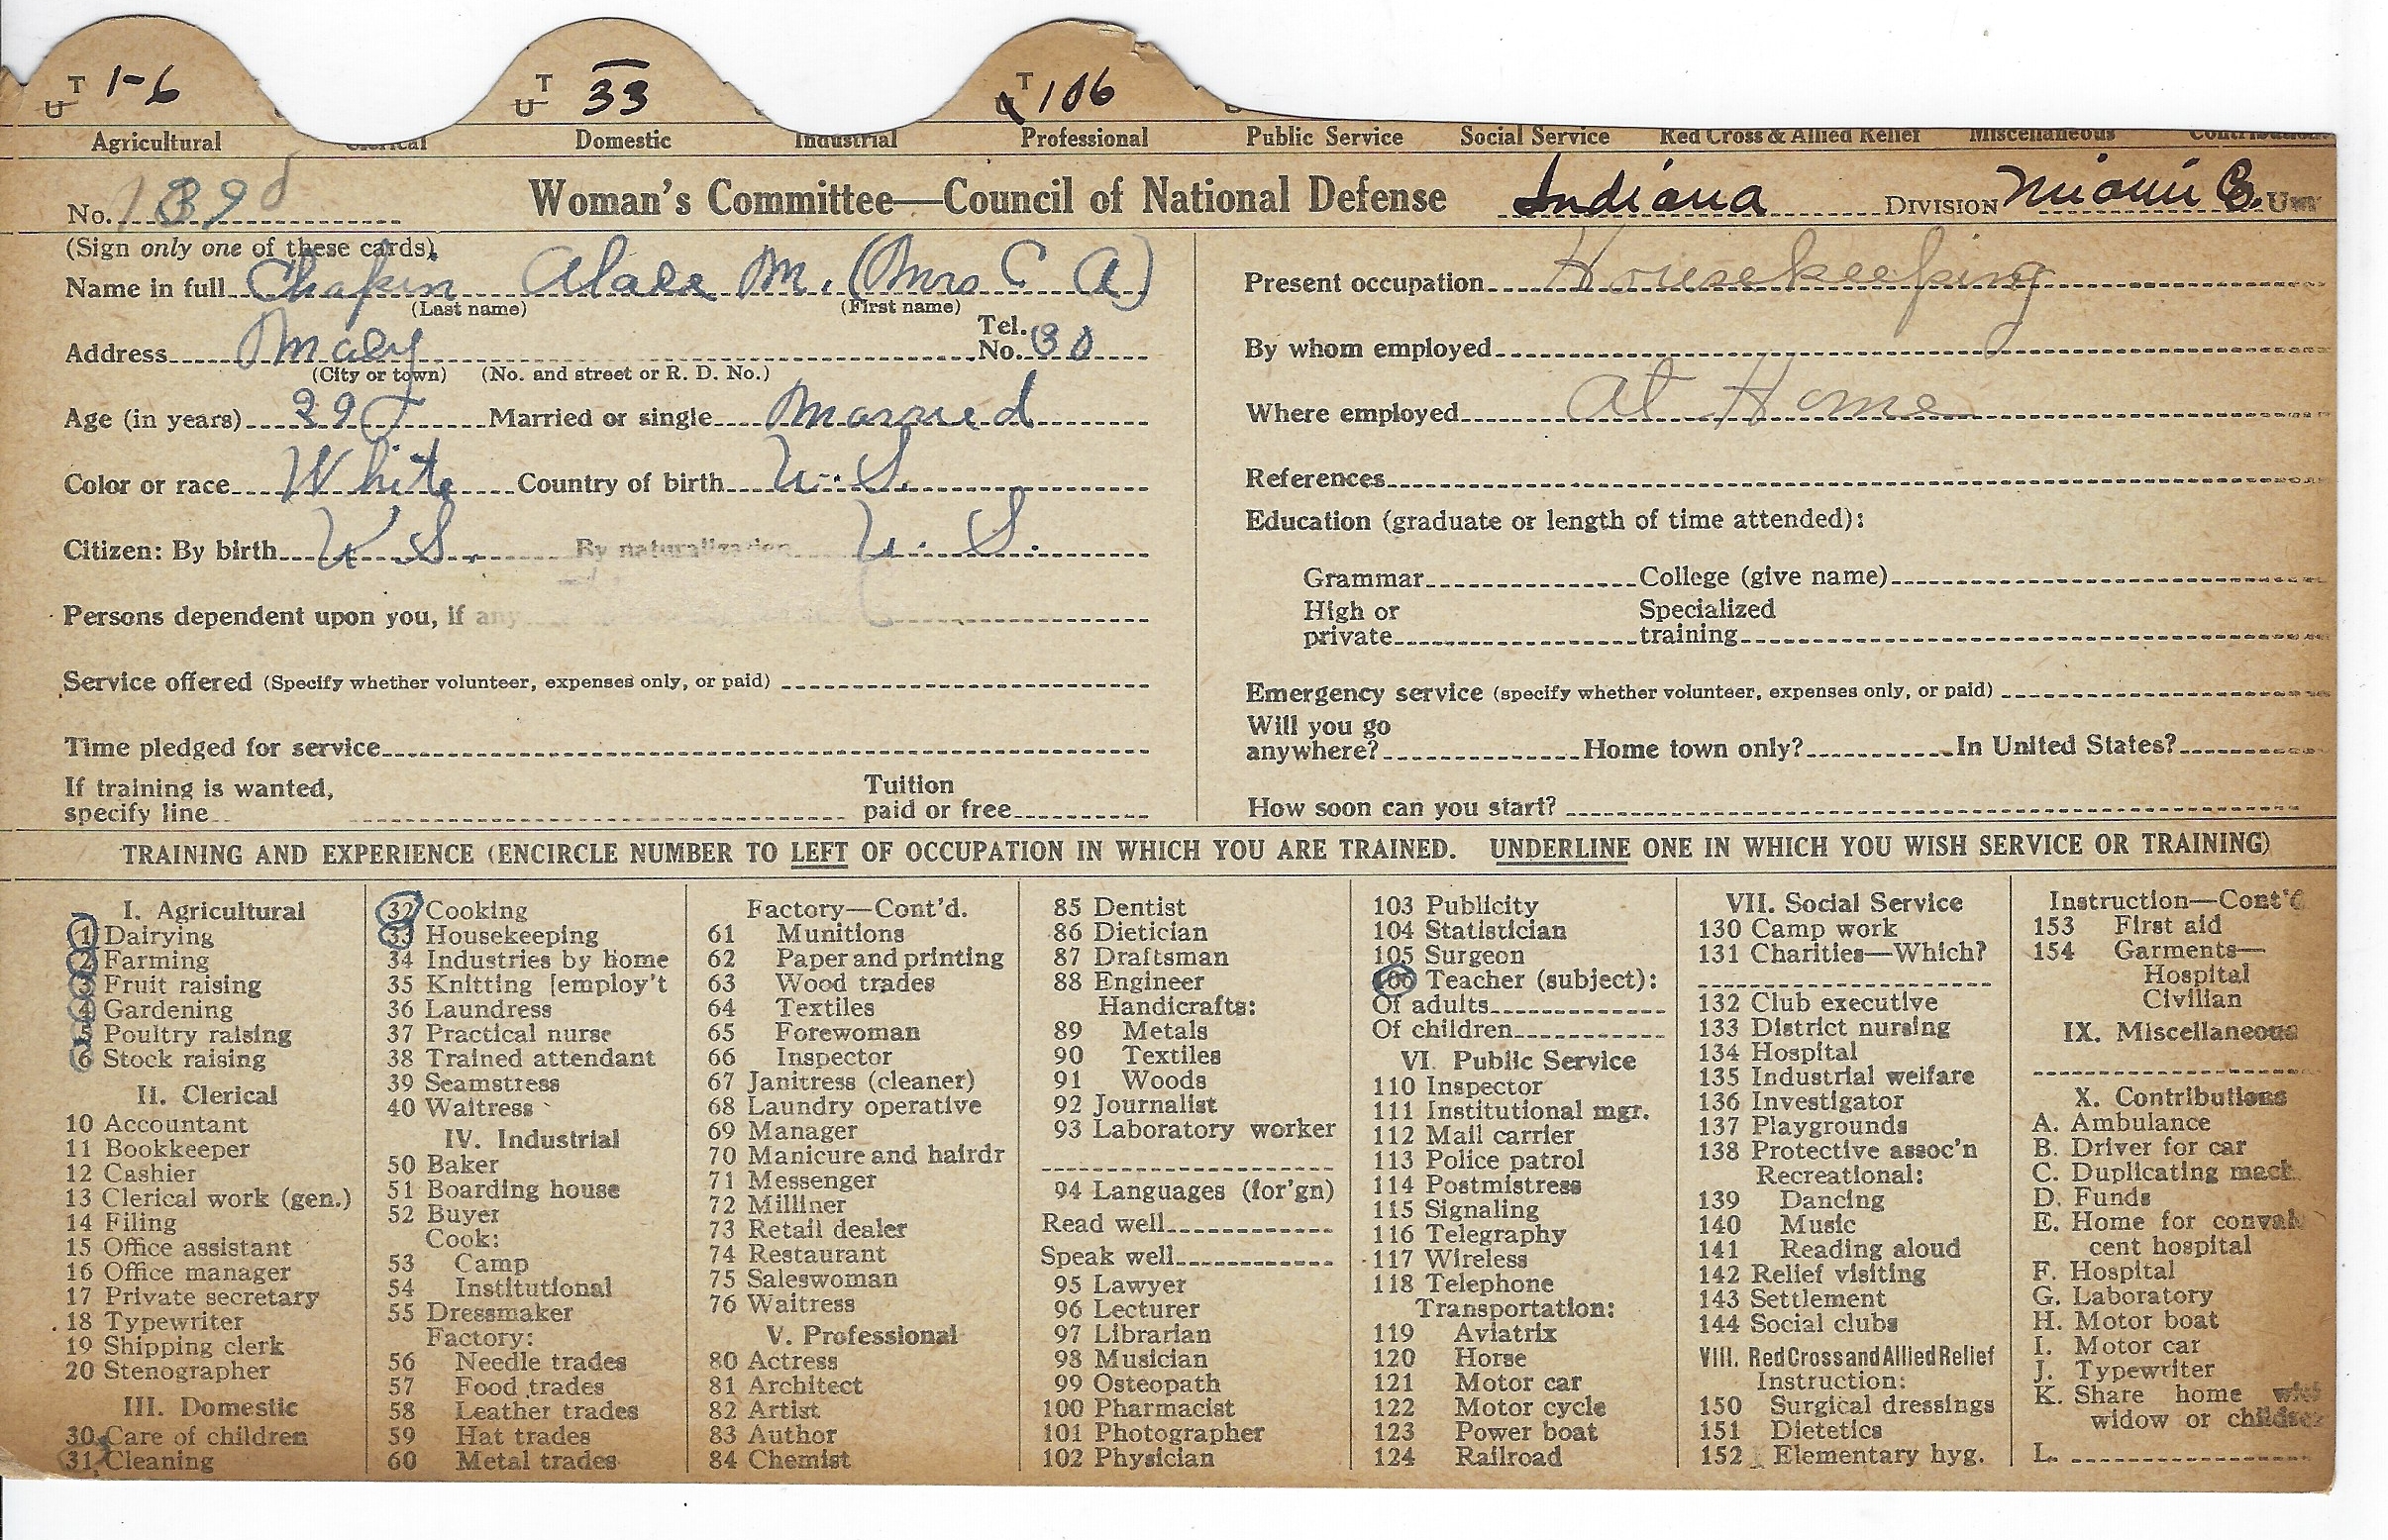 T U 1-6 T U 33 T U 106
Agricultural Clerical Domestic Industrial Professional Public Service Social Service Red Cross & Allied Relief Miscellaneous Contributions
No. 139 Woman's Committee—Council of National Defense Indiana DIVISION Miami Unit
(Sign only one of these cards)
Name in full Chapin M. (Mrs C A)
(Last name) (First name)
Address Macy Tel. No. 30
(City or town) (No. and street or R. D. No.)
Age (in years) 39 Married or single Married
Color or race White Country of birth U. S.
Citizen: By birth U S. By naturalization U. S.
Persons dependent upon you, if any
Service offered (Specify whether volunteer, expenses only, or paid)
Time pledged for service
If training is wanted, specify line Tuition paid or free
Present occupation Housekeeping
By whom employed
Where employed at Home
References
Education (graduate or length of time attended):
Grammar College (give name)
High or private Specialized training
Emergency service (specify whether volunteer, expenses only, or paid)
Will you go anywhere? Home town only? In United States?
How soon can you start?
TRAINING AND EXPERIENCE (ENCIRCLE NUMBER TO LEFT OF OCCUPATION IN WHICH YOU ARE TRAINED. UNDERLINE ONE IN WHICH YOU WISH SERVICE OR TRAINING)
I. Agricultural
1 Dairying
2 Farming
3 Fruit raising
4 Gardening
5 Poultry raising
6 Stock raising
II. Clerical
10 Accountant
11 Bookkeeper
12 Cashier
13 Clerical work (gen.)
14 Filing
15 Office assistant
16 Office manager
17 Private secretary
18 Typewriter
19 Shipping clerk
20 Stenographer
III. Domestic
30 Care of children
31 Cleaning
32 Cooking
33 Housekeeping
34 Industries by home
35 Knitting [employ't
36 Laundress
37 Practical nurse
38 Trained attendant
39 Seamstress
40 Waitress
IV. Industrial
50 Baker
51 Boarding house
52 Buyer
Cook:
53 Camp
54 Institutional
55 Dressmaker
Factory:
56 Needle trades
57 Food trades
58 Leather trades
59 Hat trades
60 Metal trades
Factory—Cont'd.
61 Munitions
62 Paper and printing
63 Wood trades
64 Textiles
65 Forewoman
66 Inspector
67 Janitress (cleaner)
68 Laundry operative
69 Manager
70 Manicure and hairdr
71 Messenger
72 Milliner
73 Retail dealer
74 Restaurant
75 Saleswoman
76 Waitress
V. Professional
80 Actress
81 Architect
82 Artist
83 Author
84 Chemist
85 Dentist
86 Dietician
87 Draftsman
88 Engineer
Handicrafts:
89 Metals
90 Textiles
91 Woods
92 Journalist
93 Laboratory worker
94 Languages (for'gn)
Read well
Speak well
95 Lawyer
96 Lecturer
97 Librarian
98 Musician
99 Osteopath
100 Pharmacist
101 Photographer
102 Physician
103 Publicity
104 Statistician
105 Surgeon
106 Teacher (subject):
Of adults
Of children
VI. Public Service
110 Inspector
111 Institutional mgr.
112 Mail carrier
113 Police patrol
114 Postmistress
115 Signaling
116 Telegraphy
117 Wireless
118 Telephone
Transportation:
119 Aviatrix
120 Horse
121 Motor car
122 Motor cycle
123 Power boat
124 Railroad
VII. Social Service
130 Camp work
131 Charities—Which?
132 Club executive
133 District nursing
134 Hospital
135 Industrial welfare
136 Investigator
137 Playgrounds
138 Protective assoc'n
Recreational:
139 Dancing
140 Music
141 Reading aloud
142 Relief visiting
143 Settlement
144 Social clubs
VIII. Red Cross and Allied Relief
Instruction:
150 Surgical dressings
151 Dietetics
152 Elementary hyg.
Instruction—Cont'd
153 First aid
154 Garments—
Hospital
Civilian
IX. Miscellaneous
X. Contributions
A. Ambulance
B. Driver for car
C. Duplicating mach.
D. Funds
E. Home for convales
cent hospital
F. Hospital
G. Laboratory
H. Motor boat
I. Motor car
J. Typewriter
K. Share home with
widow or children
L.